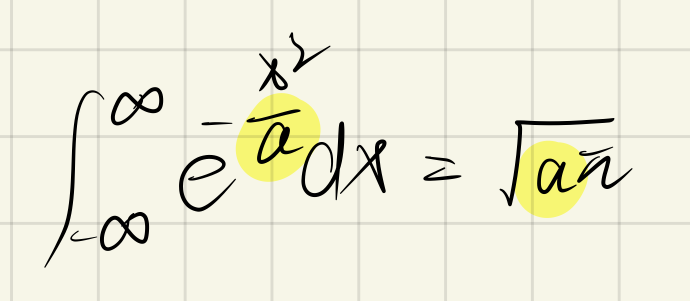 ∫_{-∞}^{∞} e^{-\frac{x^2}{a}} dx = \sqrt{aπ}